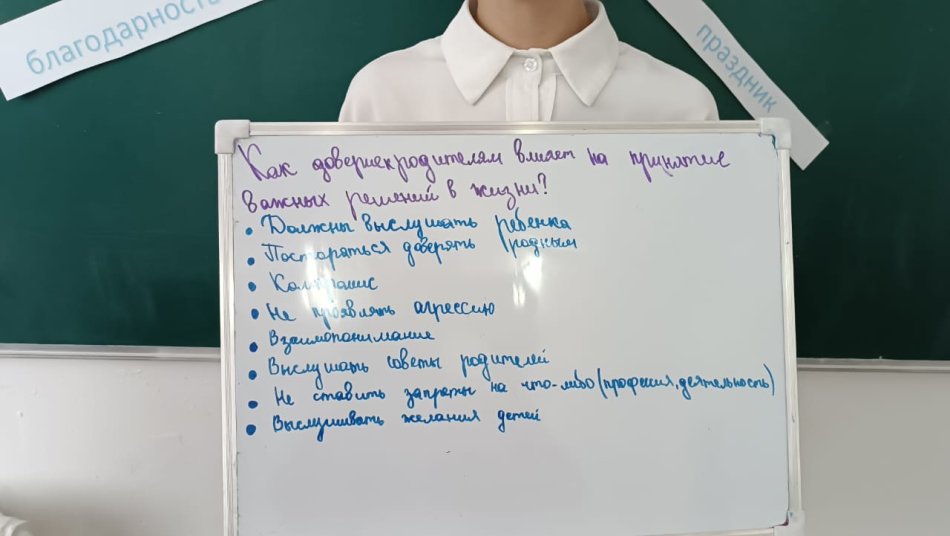 благодарность
праздник
Как довериекродителям влияет на принятие
важных решений в жизни?
• Должны выслушать ребенка
• Постараться доверять родным
• Компромис
• Не проявлять агрессию
• Взаимопонимание
• Выслушать советы родителей
• Не ставить запреты на что-либо (профессия, деятельность)
• Выслушивать желания детей